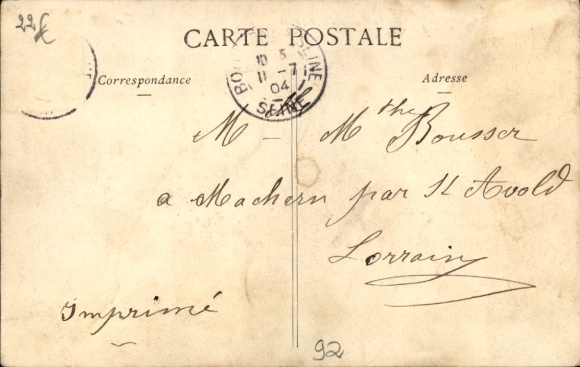 22 €
CARTE POSTALE
Correspondance
Adresse
BO SEINE
10 3
11 -7
04
SEINE
M — Mthe Bousser
a Machern par St Avold
Lorrain
Imprimé
92